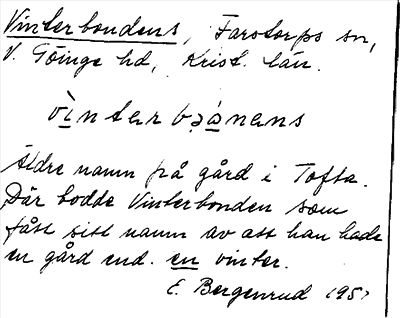 Vinterbondens, Farstorps sn,
V. Göinge hd, Krist. län.
vìntərbǫ̀nəns
Äldre namn på gård i Tofta.
Där bodde Vinterbonden som
fått sitt namn av att han hade
en gård end. en vinter.
E. Bergenrud 1951